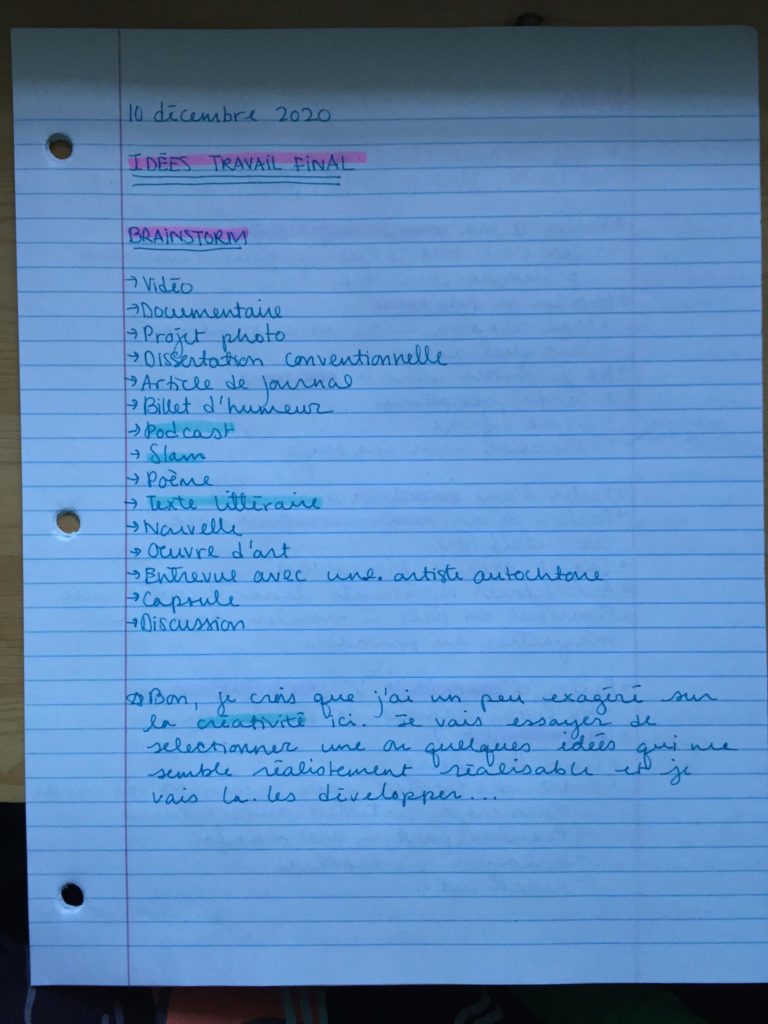 10 décembre 2020
IDÉES TRAVAIL FINAL
BRAINSTORM
→ Vidéo
→ Documentaire
→ Projet photo
→ Dissertation conventionnelle
→ Article de journal
→ Billet d'humeur
→ Podcast
→ Slam
→ Poème
→ Texte littéraire
→ Nouvelle
→ Oeuvre d'art
→ Entrevue avec un.e. artiste autochtone
→ Capsule
→ Discussion
⇒ Bon, je crois que j'ai un peu exagéré sur
la créativité ici. Je vais essayer de
selectionner une ou quelques idées qui me
semble réalistement réalisable et je
vais la.les développer...